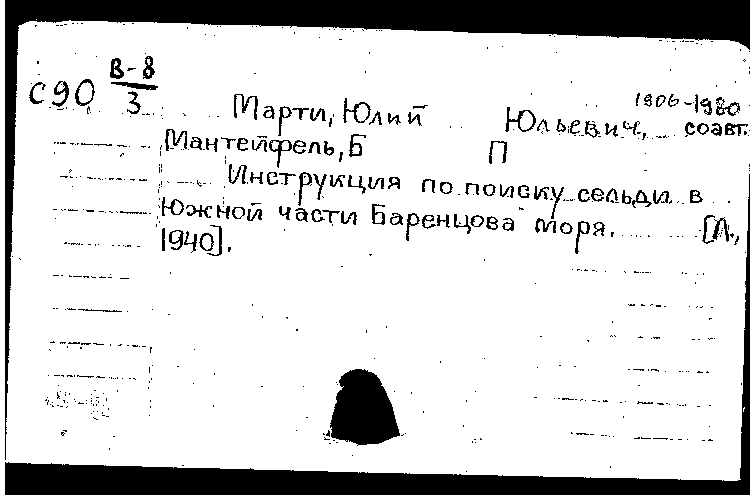 С90 В-8
3
1906-1980
Марти, Юлий Юльевич, соавт.
Мантейфель, Б П
Инструкция по поиску сельди в
Южной части Баренцова моря. [Л.,
1940].